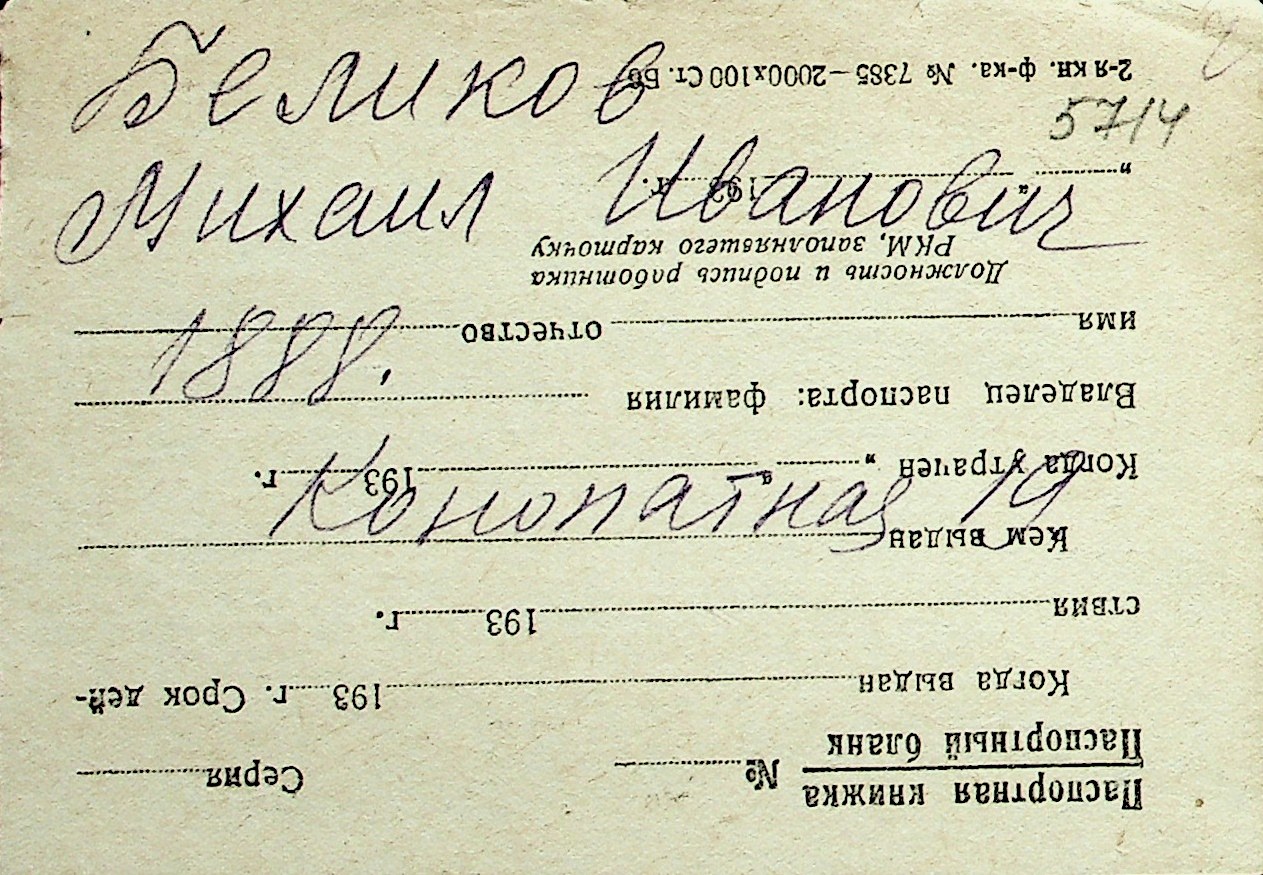 Беликов
Михаил Иванович
1888.
Конопатная 19
5714
Паспортная книжка
Паспортный бланк
№ Серия
Когда выдан 193 г. Срок дей-
ствия 193 г.
Кем выдан
Когда утрачен „ “ 193 г.
Владелец паспорта: фамилия
имя отчество
Должность и подпись работника
РКМ, заполнявшего карточку
„ “ 193 г.
2-я кн. ф-ка. № 7385—2000х100 Ст. Бб